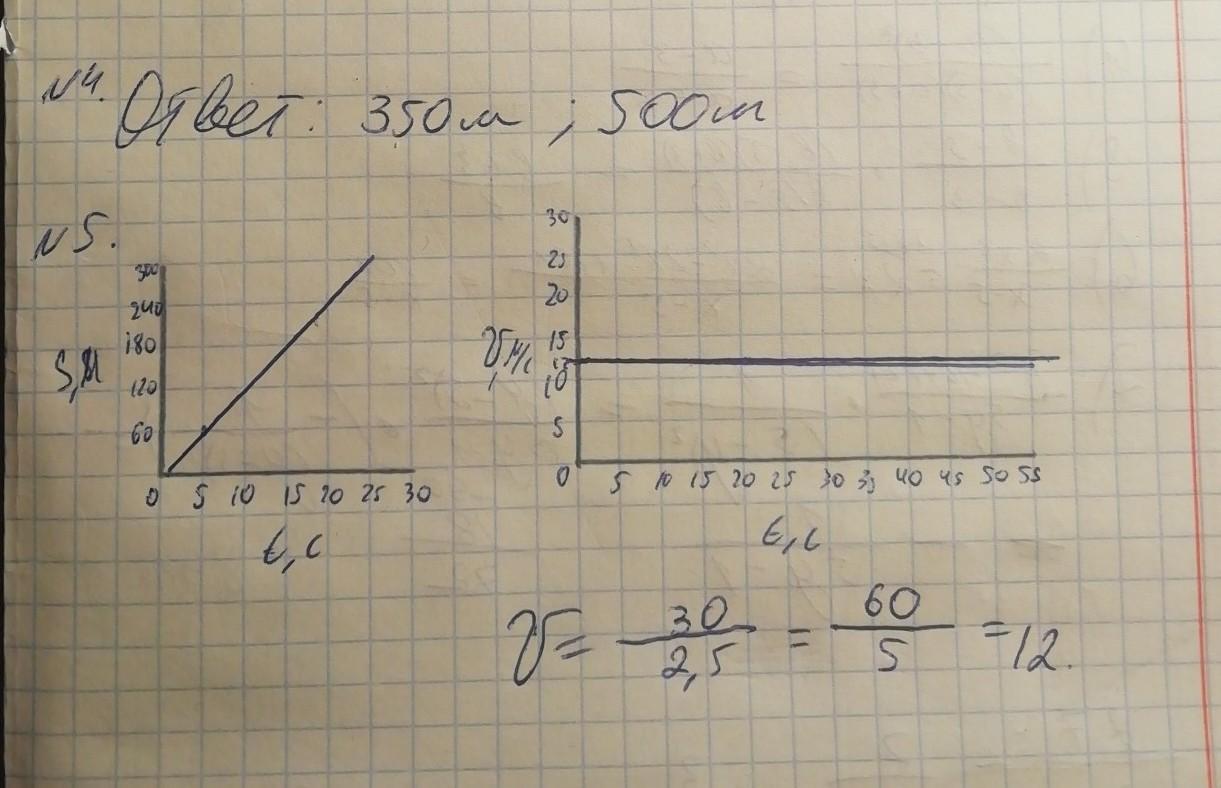 №4. Ответ: 350м ; 500м
№5.
300
240
180
120
60
S,м
0 5 10 15 20 25 30
t,c
30
25
20
15
12
10
5
V, м/с
0 5 10 15 20 25 30 35 40 45 50 55
t,c
V = 30/2,5 = 60/5 = 12.